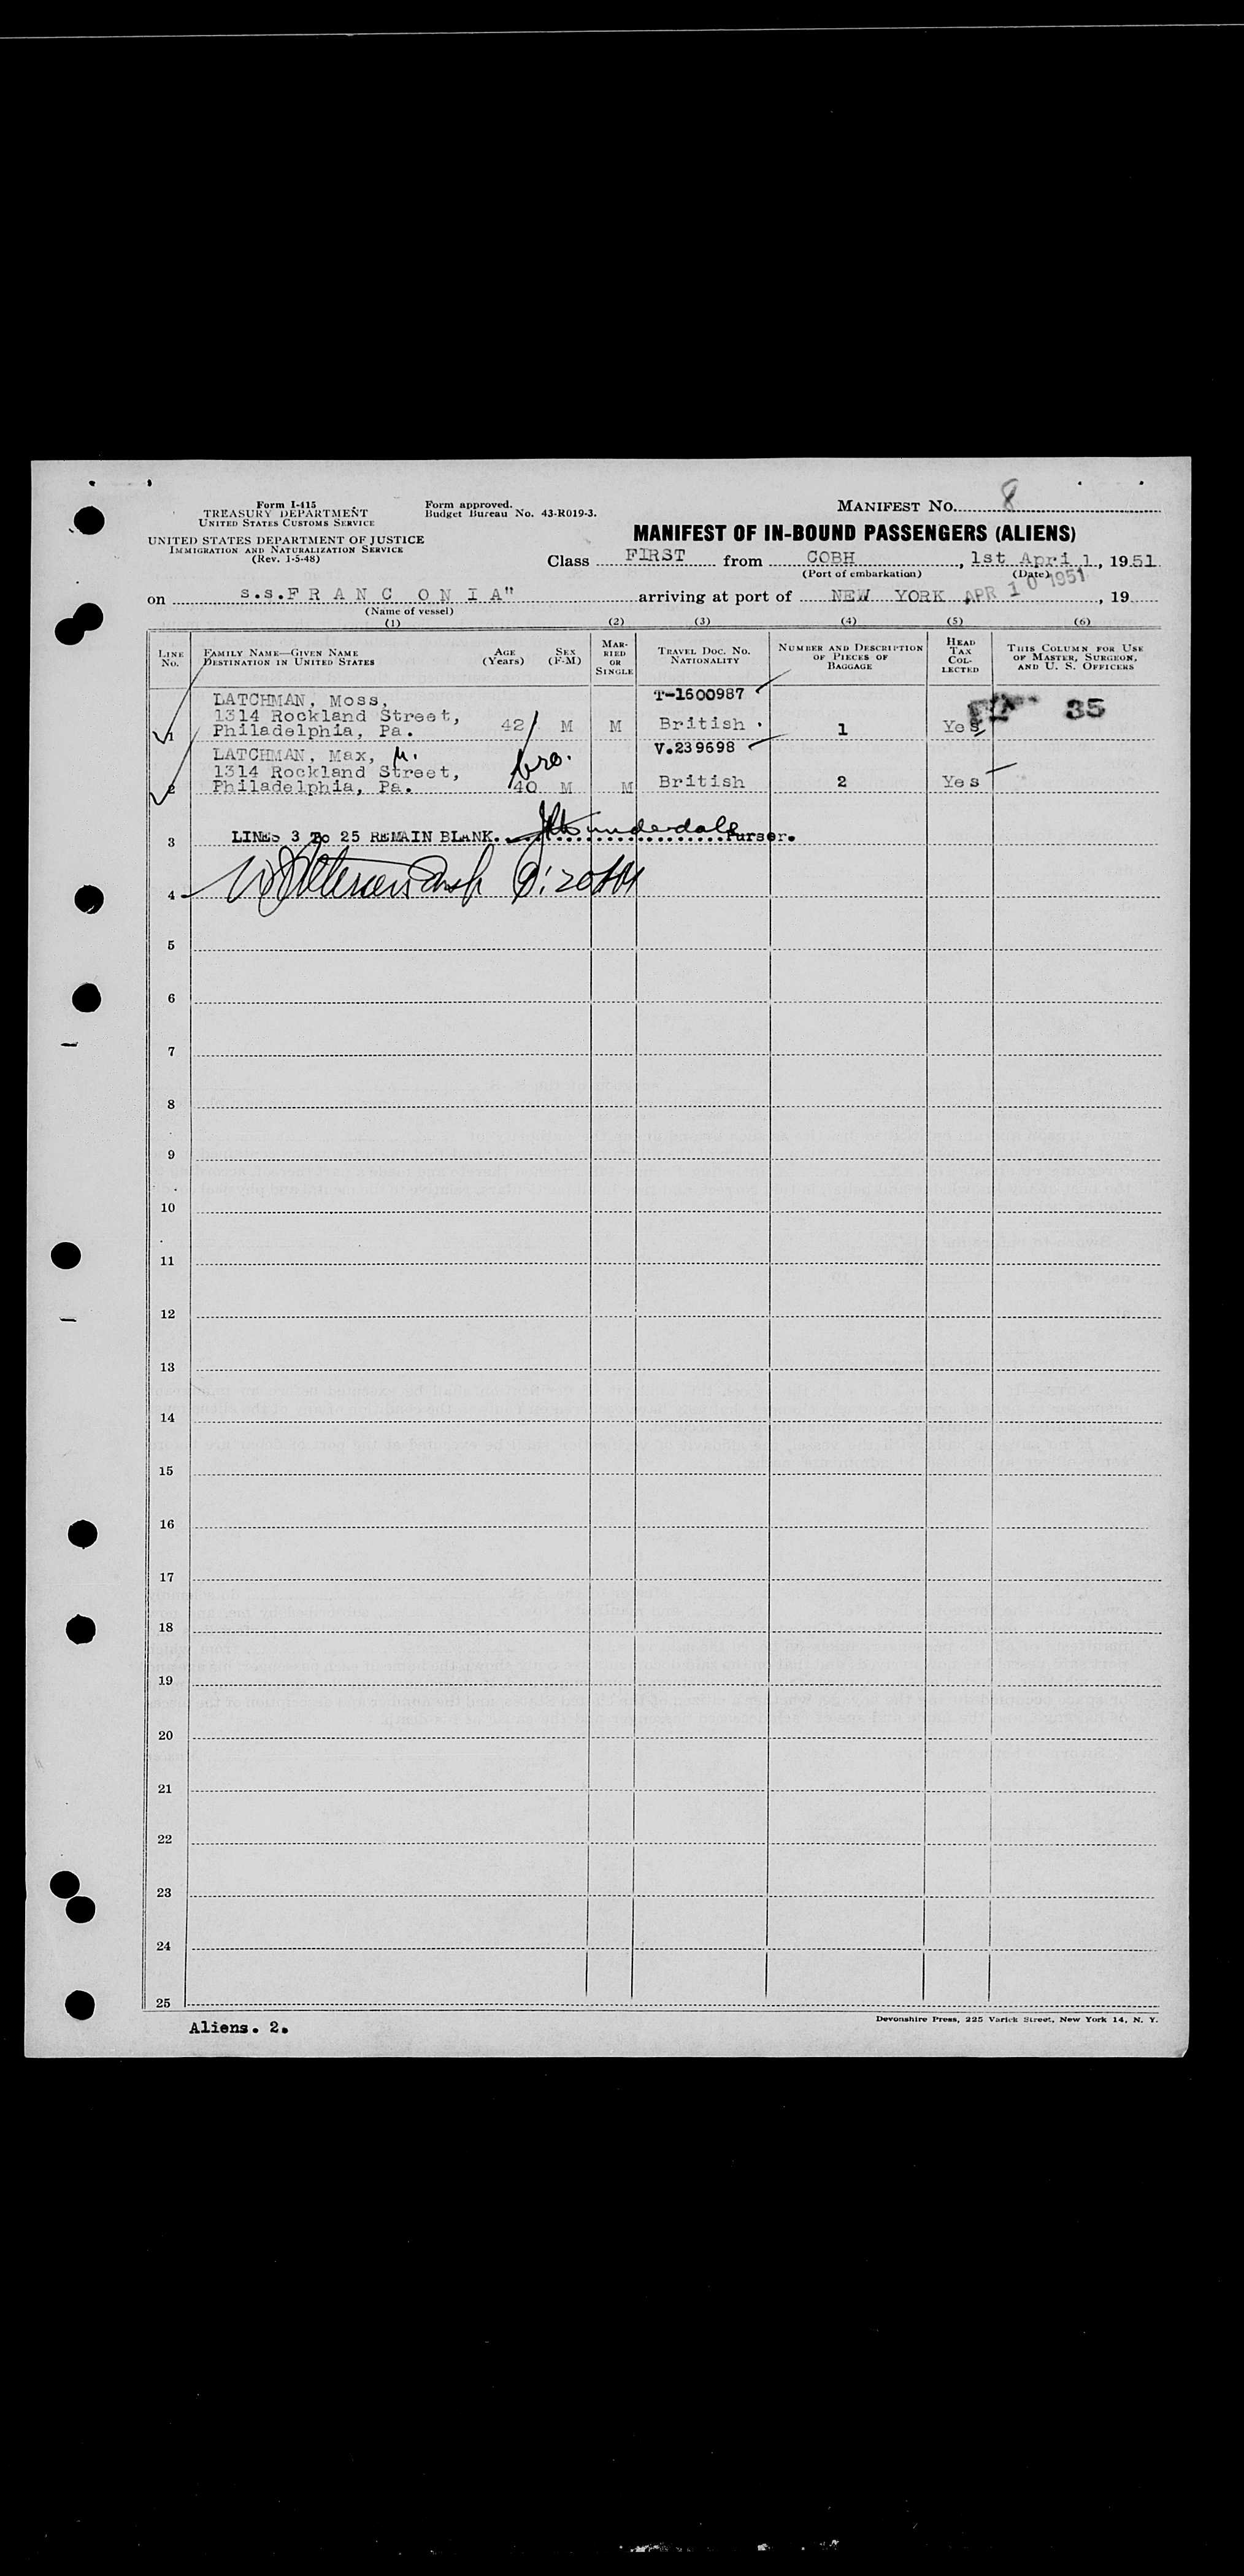 Form I-415
TREASURY DEPARTMENT
UNITED STATES CUSTOMS SERVICE
UNITED STATES DEPARTMENT OF JUSTICE
IMMIGRATION AND NATURALIZATION SERVICE
(Rev. 1-5-48)
Form approved.
Budget Bureau No. 43-R019-3.
MANIFEST NO. 8
MANIFEST OF IN-BOUND PASSENGERS (ALIENS)
Class FIRST from COBH, 1st April, 1951
(Port of embarkation) (Date)
on s.s.FRANCONIA" arriving at port of NEW YORK APR 10 1951, 19
(Name of vessel)
(1) (2) (3) (4) (5) (6)
LINE NO. FAMILY NAME—GIVEN NAME DESTINATION IN UNITED STATES AGE (Years) SEX (F-M) MARRIED OR SINGLE TRAVEL DOC. NO. NATIONALITY NUMBER AND DESCRIPTION OF PIECES OF BAGGAGE HEAD TAX COLLECTED THIS COLUMN FOR USE OF MASTER, SURGEON, AND U. S. OFFICERS
LATCHMAN, Moss, T-1600987
1314 Rockland Street,
1 Philadelphia, Pa. 42 M M British . 1 Yes 35
LATCHMAN, Max, M. bro. V.239698
1314 Rockland Street,
2 Philadelphia, Pa. 40 M M British 2 Yes
3 LINES 3 To 25 REMAIN BLANK. Purser.
4
5
6
7
8
9
10
11
12
13
14
15
16
17
18
19
20
21
22
23
24
25
Aliens. 2.
Devonshire Press, 225 Varick Street, New York 14, N. Y.